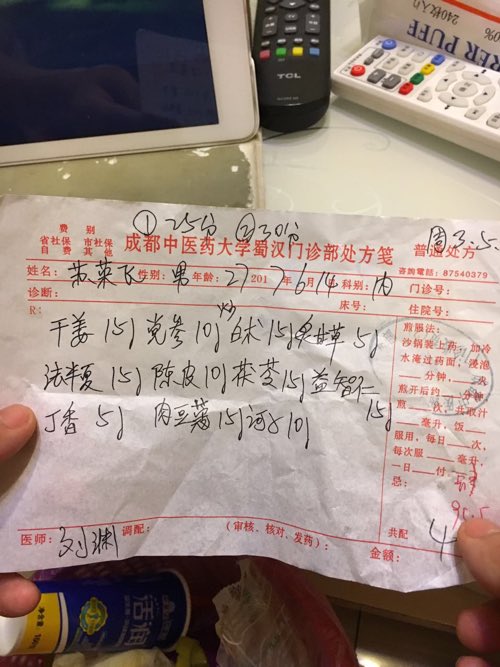 TCL
240枚入り
RER PUFF
费 别
① 25份 ② 30份
省社保 市社保
自费 其他
成都中医药大学蜀汉门诊部处方笺
普通处方
周3.5.
姓名: 性别: 男 年龄: 27 2017年6月14 科别: 内
咨询電話: 87540379
门诊号:
诊断: 床号: 住院号:
R:
炒
干姜 15g 党参 10g 白术 15g 炙甘草 5g
法半夏 15g 陈皮 10g 茯苓 15g 益智仁 15g
丁香 5g 肉豆蔻 15g 诃子 10g
煎服法:
沙锅装上药; 加冷
水淹过药面, 浸泡
分钟, 火
煎开后约 分钟,
煎 次, 共取汁
毫升, 饭
服用, 每日 次,
每次服 毫升,
一日 付
忌:
95.5
医师: 刘渊 调配: (审核、核对、发药):
共配 4
金额:
活润
100片